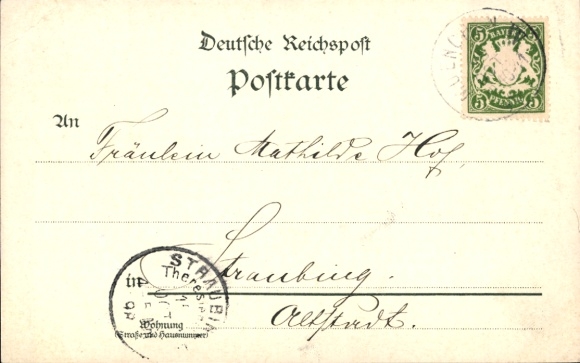 Deutsche Reichspost
Postkarte
5 BAYERN 5
5 PFENNIG 5
An
Fräulein Mathilde Hof,
in Straubing.
Altstadt.
Wohnung
(Straße und Hausnummer)
STRAUBING
OKT
98